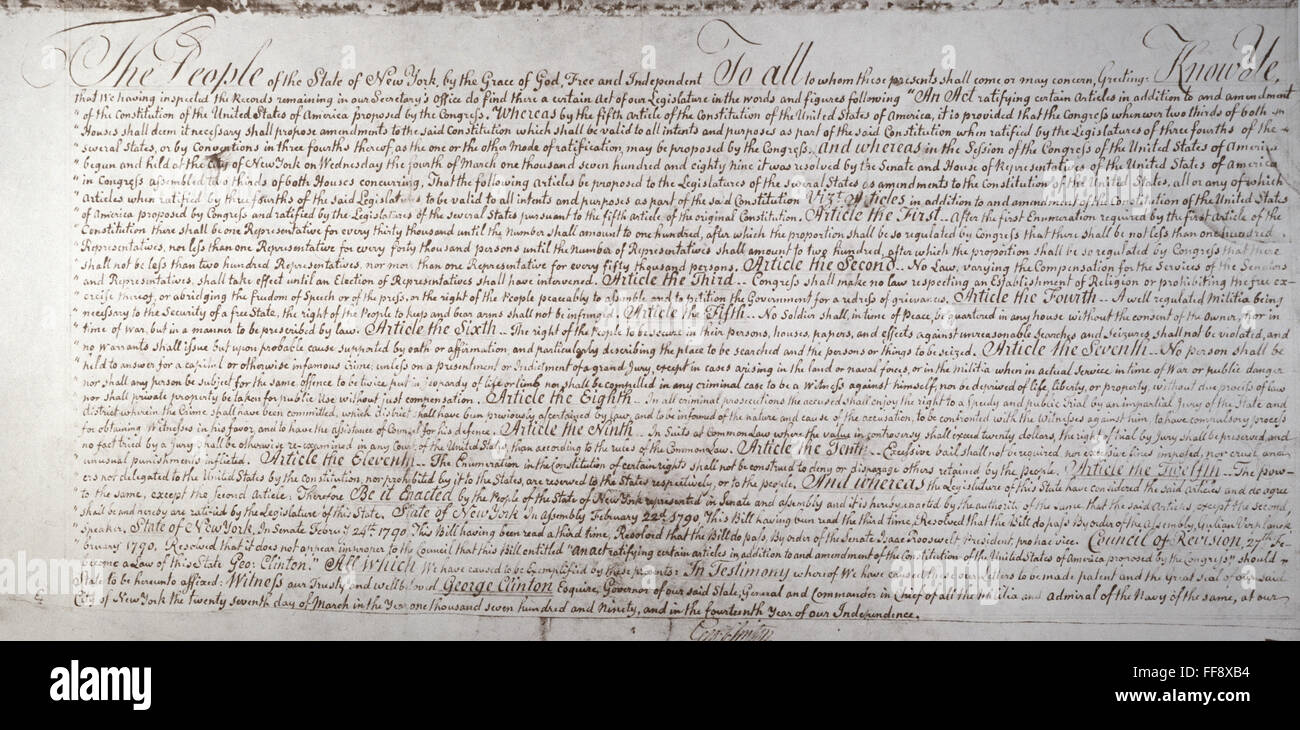 The People of the State of New York, by the Grace of God, Free and Independent To all to whom these presents shall come or may concern, Greeting: Know Ye,
that We having inspected the Records remaining in our Secretary's Office do find there a certain Act of our Legislature in the words and figures following "An Act ratifying certain Articles in addition to and amendment
"of the Constitution of the United States of America proposed by the Congress. Whereas by the fifth Article of the Constitution of the United States of America, it is provided that the Congress whenever two thirds of both
"Houses shall deem it necessary shall propose amendments to the said Constitution which shall be valid to all intents and purposes as part of the said Constitution when ratified by the Legislatures of three fourths of the
"several States, or by Conventions in three fourths thereof as the one or the other Mode of ratification, may be proposed by the Congress. And whereas in the Session of the Congress of the United States of America
"begun and held at the City of New York on Wednesday the fourth of March one thousand seven hundred and eighty nine it was resolved by the Senate and House of Representatives of the United States of America
"in Congress assembled two thirds of both Houses concurring, That the following Articles be proposed to the Legislatures of the several States as amendments to the Constitution of the United States, all or any of which
"Articles when ratified by three fourths of the said Legislatures to be valid to all intents and purposes as part of the said Constitution Vizt. Articles in addition to and amendment of the Constitution of the United States
"of America proposed by Congress and ratified by the Legislatures of the several States pursuant to the fifth article of the original Constitution. Article the First.. After the first Enumeration required by the first Article of the
"Constitution there shall be one Representative for every thirty thousand until the Number shall amount to one hundred, after which the proportion shall be so regulated by Congress that there shall be not less than one hundred
"Representatives, nor less than one Representative for every forty thousand persons until the Number of Representatives shall amount to two hundred, after which the proportion shall be so regulated by Congress that there
"shall not be less than two hundred Representatives, nor more than one Representative for every fifty thousand persons. Article the Second.. No Law, varying the Compensation for the Services of the Senators
"and Representatives, shall take effect until an Election of Representatives shall have intervened. Article the Third.. Congress shall make no law respecting an Establishment of Religion or prohibiting the free ex-
"ercise thereof, or abridging the freedom of Speech or of the press, or the right of the People peaceably to assemble and to petition the Government for a redress of grievances. Article the Fourth.. A well regulated Militia being
"necessary to the Security of a free State, the right of the People to keep and bear arms shall not be infringed. Article the Fifth.. No Soldier shall, in time of Peace, be quartered in any house without the consent of the Owner, nor in
"time of war, but in a manner to be prescribed by law. Article the Sixth.. The right of the People to be secure in their persons, houses, papers, and effects against unreasonable Searches and Seizures, shall not be violated, and
"no warrants shall issue but upon probable cause supported by oath or affirmation and particularly describing the place to be searched and the persons or things to be seized. Article the Seventh.. No person shall be
"held to answer for a capital or otherwise infamous Crime, unless on a presentment or Indictment of a grand Jury, except in cases arising in the land or naval forces, or in the militia when in actual Service in time of War or public danger
"nor shall any person be subject for the same offence to be twice put in jeopardy of life or limb, nor shall be compelled in any criminal case to be a Witness against himself, nor be deprived of life, liberty, or property, without due process of law
"nor shall private property be taken for public Use without just compensation. Article the Eighth.. In all criminal prosecutions the accused shall enjoy the right to a speedy and public trial by an impartial Jury of the State and
"district wherein the Crime shall have been committed, which district shall have been previously ascertained by law, and to be informed of the nature and cause of the accusation, to be confronted with the Witnesses against him, to have compulsory process
"for obtaining Witnesses in his favor, and to have the assistance of Counsel for his defence. Article the Ninth.. In Suits at Common Law where the value in controversy shall exceed twenty dollars, the right of trial by Jury shall be preserved and
"no fact tried by a Jury shall be otherwise re-examined in any Court of the United States, than according to the rules of the Common Law. Article the Tenth.. Excessive bail shall not be required nor excessive fines imposed, nor cruel and
"unusual punishments inflicted. Article the Eleventh.. The Enumeration in the Constitution of certain rights shall not be construed to deny or disparage others retained by the people. Article the Twelfth.. The pow-
"ers not delegated to the United States by the Constitution, nor prohibited by it to the States, are reserved to the States respectively, or to the people. And whereas the Legislature of this State have considered the said Articles and do agree
"to the same, except the Second Article. Therefore Be it Enacted by the People of the State of New York represented in Senate and Assembly and it is hereby enacted by the authority of the same that the said Articles, except the second,
"shall be and hereby are ratified by the Legislature of this State. State of New York In Assembly February 22d. 1790. This Bill having been read the third time, Resolved that the Bill do pass By order of the Assembly, Gulian Verplanck
"Speaker. State of New York, In Senate Febry. 24th. 1790. This Bill having been read a third time, Resolved that the Bill do pass, By order of the Senate Isaac Roosevelt President pro hac vice. Council of Revision, 27th. Fe-
"bruary 1790. Resolved that it does not appear improper to the Council that this Bill entitled "An act ratifying certain articles in addition to and amendment of the Constitution of the United States of America proposed by the Congress," should
"become a Law of this State Geo: Clinton." All which We have caused to be Exemplified by these presents. In Testimony whereof We have caused these our Letters to be made patent and the Great Seal of our said
State to be hereunto affixed. Witness our trusty and well beloved George Clinton Esquire, Governor of our said State, General and Commander in Chief of all the Militia and Admiral of the Navy of the same, at our
City of New York the twenty seventh day of March in the Year one thousand seven hundred and Ninety, and in the fourteenth Year of our Independence.
Geo: Clinton
alamy
Image ID: FF8XB4
www.alamy.com